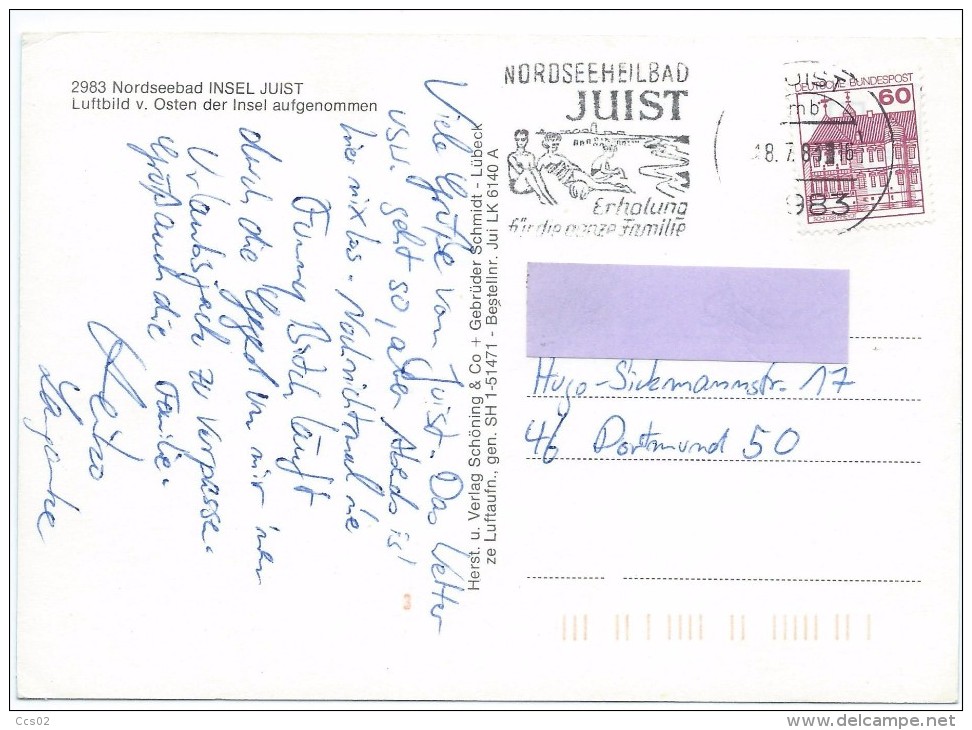 2983 Nordseebad INSEL JUIST
Luftbild v. Osten der Insel aufgenommen
Viele Grüße von Juist. Das Wetter
usw. geht so, aber Abds is'
hier nix los. Noch nicht mal ne
Funny Bitch läuft
durch die Gegend um mir den
Urlaubsjack zu verpassen.
Gruß auch die Familie.
Heiko
Herst. u. Verlag Schöning & Co + Gebrüder Schmidt - Lübeck
ze Luftaufn., gen. SH 1-51471 - Bestellnr. Jui LK 6140 A
NORDSEEHEILBAD
JUIST
Erholung
für die ganze Familie
JUIST
18.7.8
2983
DEUTSCHE BUNDESPOST
60
Hugo-Sickmannstr. 17
46 Dortmund 50
3
Ccs02
delcampe.net